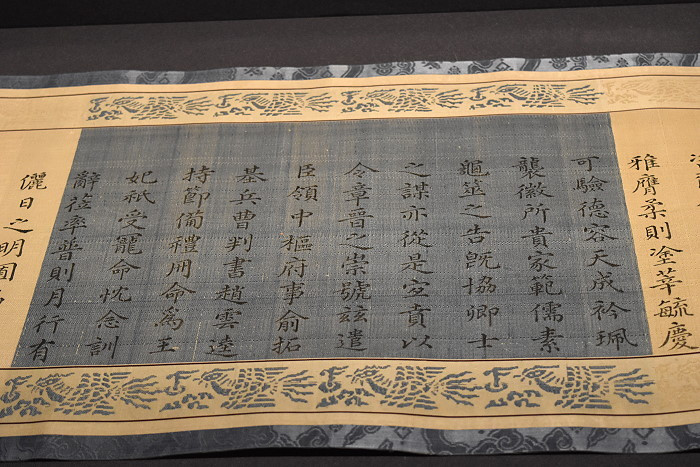 雅膺柔則塗莘毓慶
可驗德容天成衿珮
襲徽所貴家範儒素
龜筮之告旣協卿士
之謀亦從是宜賁以
令章晉之崇號兹遣
臣領中樞府事俞拓
基兵曹判書趙雲逵
持節備禮冊命爲王
妃祇受寵命忱念訓
辭徃率普則月行有
儷日之明